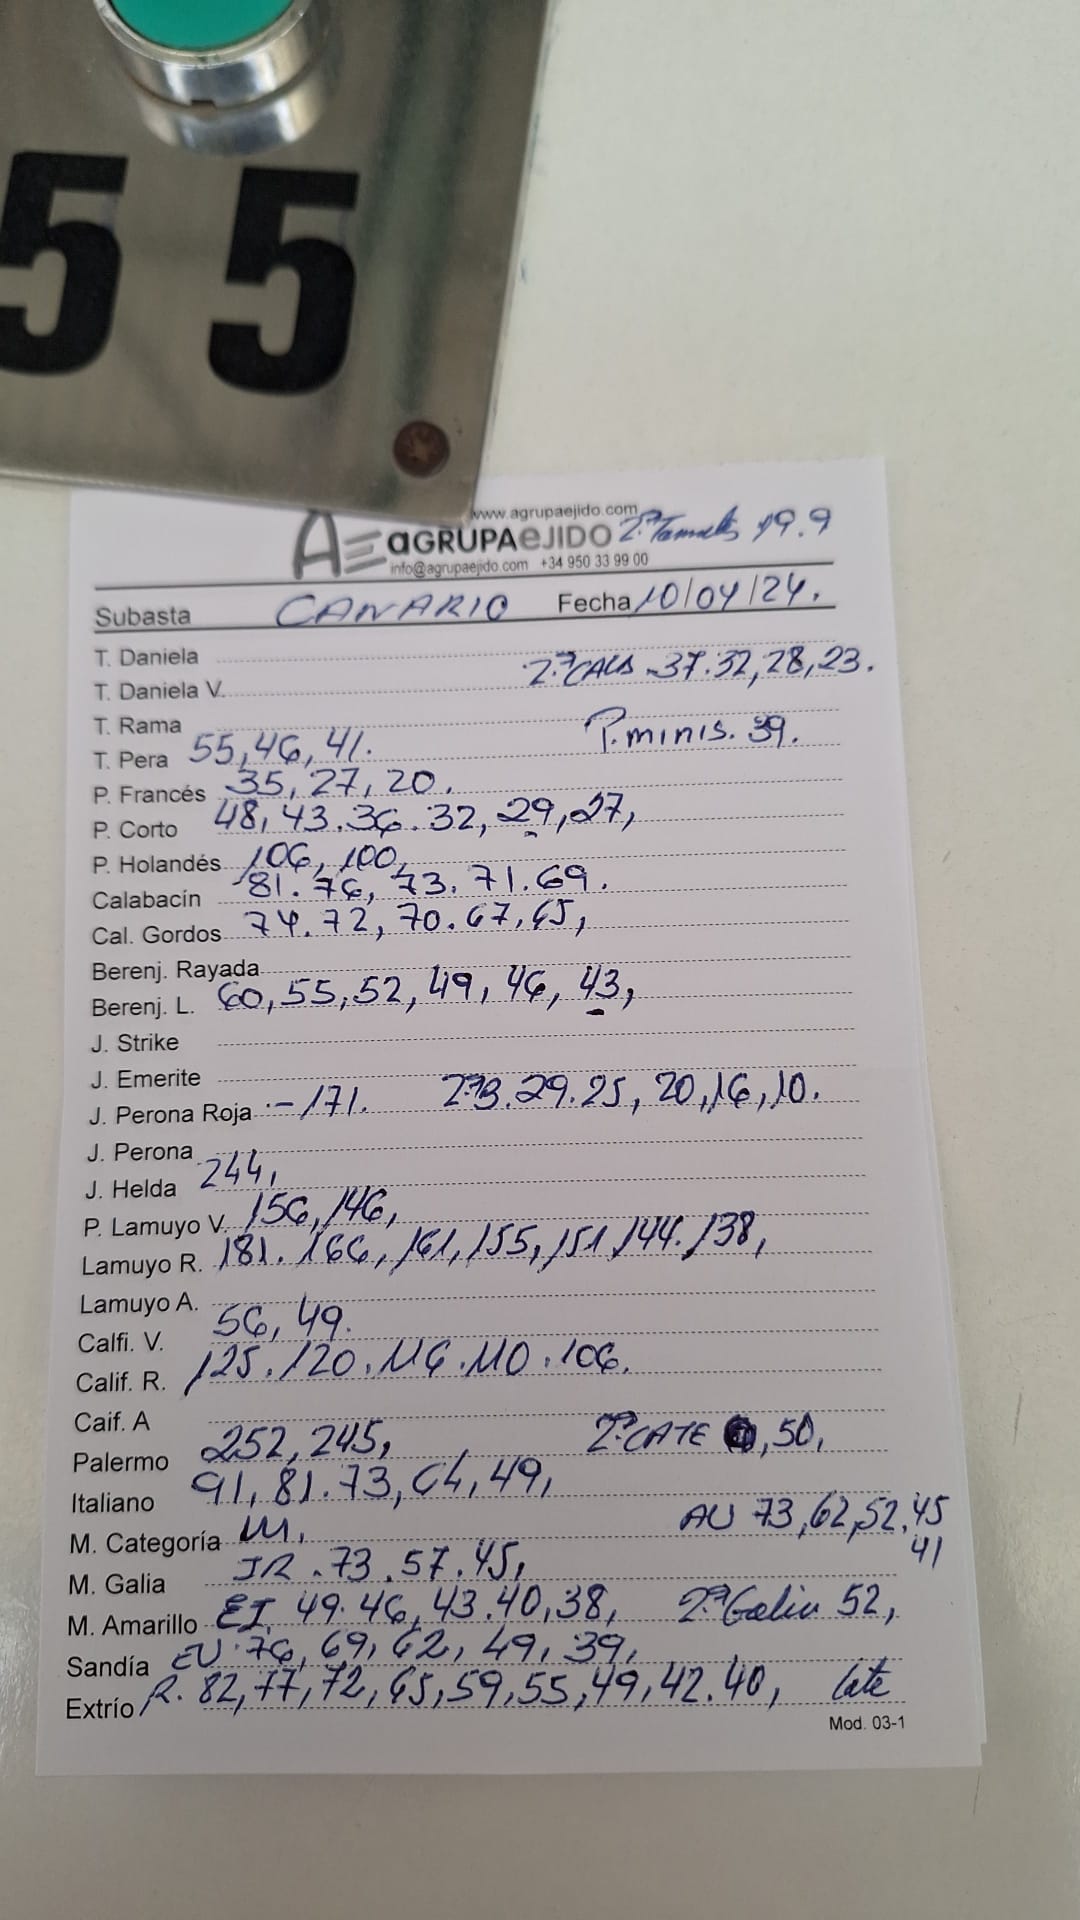 55
www.agrupaejido.com
AE aGRUPAeJIDO 2ª Tamaño 19.9
info@agrupaejido.com +34 950 33 99 00
Subasta CANARIO Fecha 10/04/24.
T. Daniela
T. Daniela V. 2.ª CALA .37.32,28,23.
T. Rama
T. Pera 55,46,41. P.minis. 39.
P. Francés 35,27,20.
P. Corto 48,43.36.32,29,27,
P. Holandés 106,100,
Calabacín 81.76,73.71.69.
Cal. Gordos 74.72,70.67,65,
Berenj. Rayada
Berenj. L. 60,55,52,49,46,43,
J. Strike
J. Emerite
J. Perona Roja -171. 2ªB.29.25,20,16,10.
J. Perona
J. Helda 244,
P. Lamuyo V. 156,146,
Lamuyo R. 181.166,161,155,151,144.138,
Lamuyo A.
Calfi. V. 56,49.
Calif. R. 125.120.116.110.106.
Caif. A
Palermo 252,245, 2.ª CATE ,50,
Italiano 91,81.73,64,49,
M. Categoría AU 73,62,52,45
41
M. Galia JR.73.57.45,
M. Amarillo EI. 49.46,43.40,38, 2.ª Galia 52,
Sandía EU.76,69,62,49,39,
Extrío R.82,77,72,65,59,55,49,42.40,
Mod. 03-1